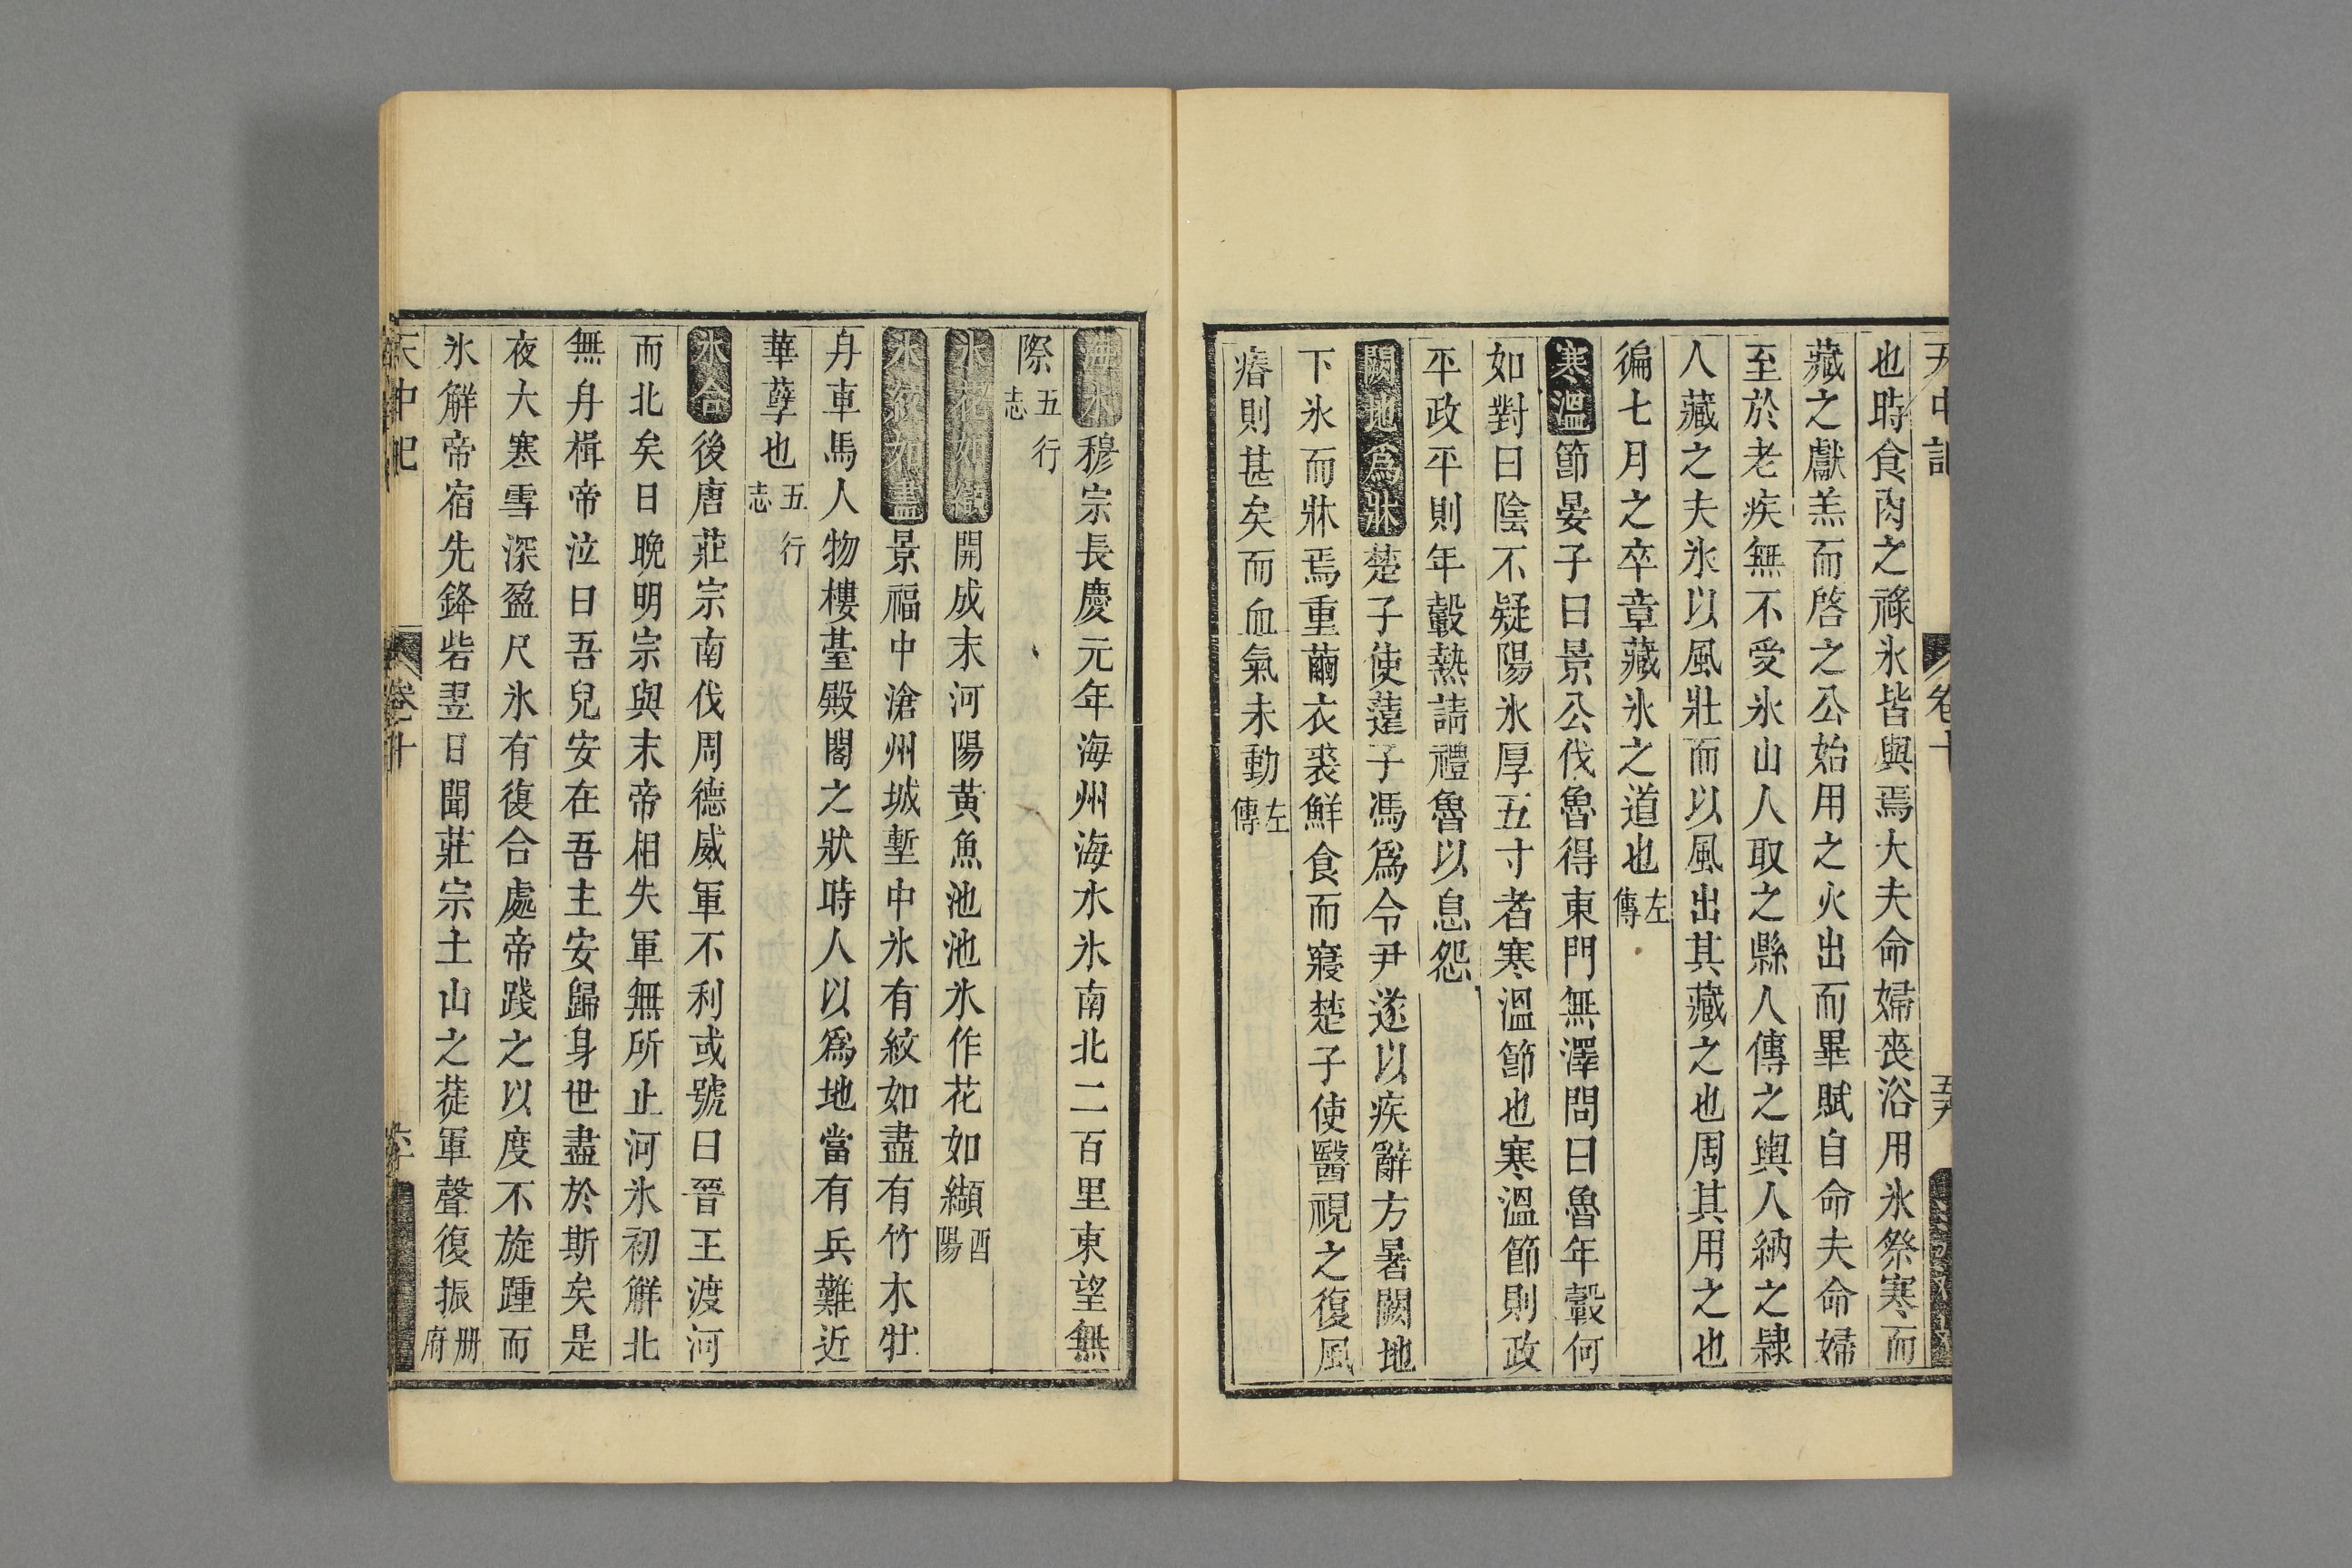 天中記 卷十 五九
也時食肉之祿氷皆與焉大夫命婦喪浴用氷祭寒而
藏之獻羔而啓之公始用之火出而畢賦自命夫命婦
至於老疾無不受氷山人取之縣人傳之輿人納之隸
人藏之夫氷以風壯而以風出其藏之也周其用之也
徧七月之卒章藏氷之道也左傳
寒溫節晏子曰景公伐魯得東門無澤問曰魯年穀何
如對曰陰不疑陽氷厚五寸者寒溫節也寒溫節則政
平政平則年穀熟請禮魯以息怨
闕地爲牀楚子使薳子馮爲令尹遂以疾辭方暑闕地
下氷而牀焉重繭衣裘鮮食而寢楚子使醫視之復風
瘠則甚矣而血氣未動左傳
海氷穆宗長慶元年海州海水氷南北二百里東望無
際五行志
氷花如纈開成末河陽黃魚池池氷作花如纈酉陽
氷紋如畫景福中滄州城塹中氷有紋如畫有竹木牡
舟車馬人物樓臺殿閣之狀時人以爲地當有兵難近
華孽也五行志
氷合後唐莊宗南伐周德威軍不利或號曰晉王渡河
而北矣日晚明宗與末帝相失軍無所止河氷初解北
無舟楫帝泣曰吾兒安在吾主安歸身世盡於斯矣是
夜大寒雪深盈尺氷有復合處帝踐之以度不旋踵而
氷解帝宿先鋒砦翌日聞莊宗土山之莚軍聲復振册府
天中記 卷十 六十